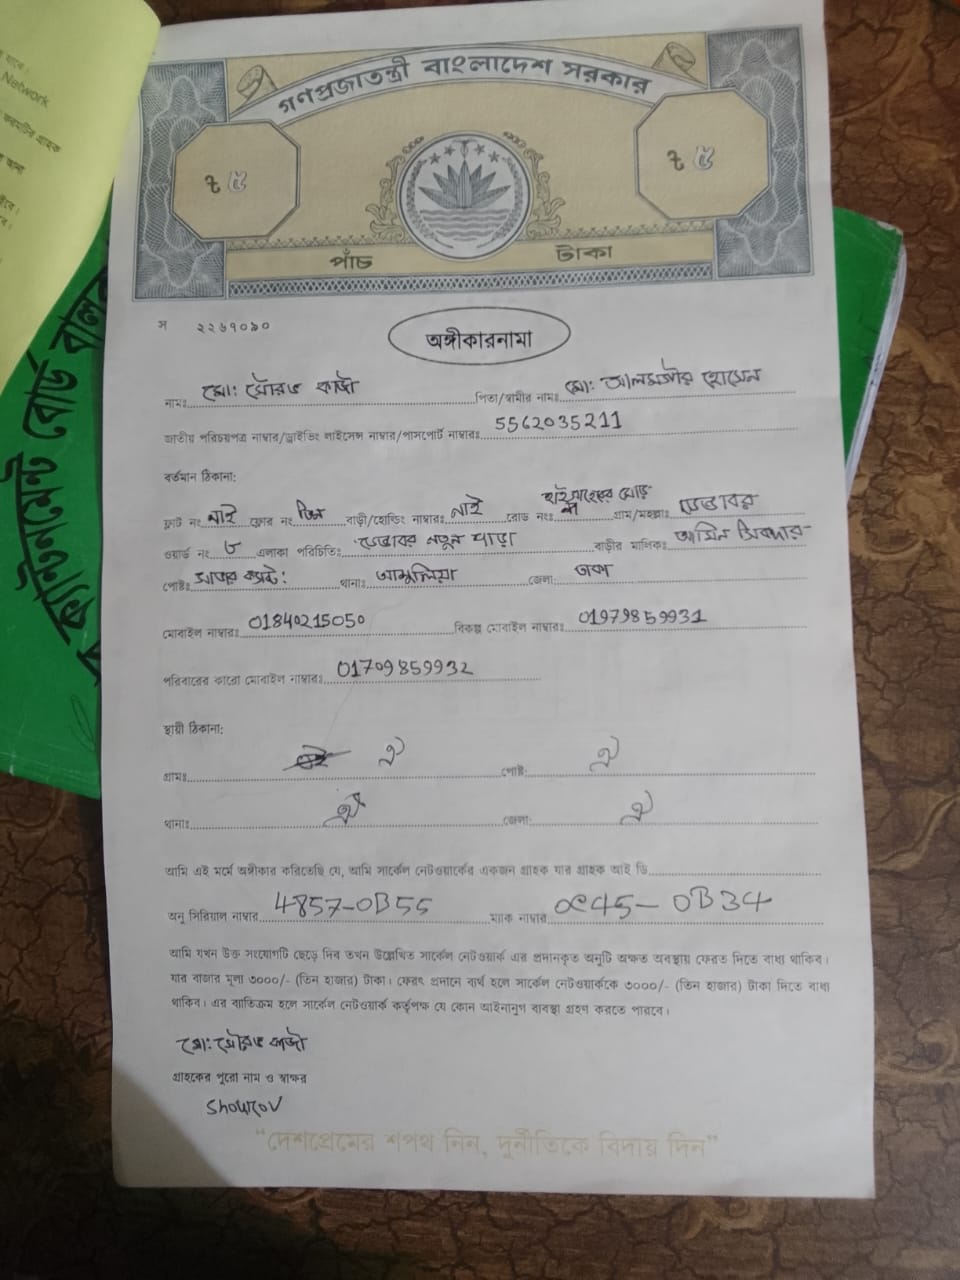 যাবে।
Network
ফরমটির গ্রাহক
ক্যান্টনমেন্ট বোর্ড বাল
গণপ্রজাতন্ত্রী বাংলাদেশ সরকার
৳ ৫ ৳ ৫
পাঁচ টাকা
স ২২৬৭০৯০
অঙ্গীকারনামা
নামঃ মো: সৌরভ কাজী পিতা/স্বামীর নামঃ মো: আলমগীর হোসেন
জাতীয় পরিচয়পত্র নাম্বার/ড্রাইভিং লাইসেন্স নাম্বার/পাসপোর্ট নাম্বারঃ 5562035211
বর্তমান ঠিকানা:
ফ্লাট নং নাই ফ্লোর নং তিন বাড়ী/হোল্ডিং নাম্বারঃ নাই রোড নংঃ মোড় গ্রাম/মহল্লাঃ ডেন্ডাবর
ওয়ার্ড নং ৮ এলাকা পরিচিতিঃ ডেন্ডাবর নতুন পাড়া বাড়ীর মালিকঃ আমিন সিকদার
পোষ্টঃ সাভার ক্যান্ট: থানাঃ আশুলিয়া জেলা: ঢাকা
মোবাইল নাম্বারঃ 01840215050 বিকল্প মোবাইল নাম্বারঃ 01979859931
পরিবারের কারো মোবাইল নাম্বারঃ 01709859932
স্থায়ী ঠিকানা:
গ্রামঃ ঐ পোষ্ট: ঐ
থানাঃ ঐ জেলা: ঐ
আমি এই মর্মে অঙ্গীকার করিতেছি যে, আমি সার্কেল নেটওয়ার্কের একজন গ্রাহক যার গ্রাহক আই ডি
অনু সিরিয়াল নাম্বার 4857-0B55 ম্যাক নাম্বার 0C45-0B34
আমি যখন উক্ত সংযোগটি ছেড়ে দিব তখন উল্লেখিত সার্কেল নেটওয়ার্ক এর প্রদানকৃত অনুটি অক্ষত অবস্থায় ফেরত দিতে বাধ্য থাকিব।
যার বাজার মূল্য ৩০০০/- (তিন হাজার) টাকা। ফেরৎ প্রদানে ব্যর্থ হলে সার্কেল নেটওয়ার্ককে ৩০০০/- (তিন হাজার) টাকা দিতে বাধ্য
থাকিব। এর ব্যতিক্রম হলে সার্কেল নেটওয়ার্ক কর্তৃপক্ষ যে কোন আইনানুগ ব্যবস্থা গ্রহণ করতে পারবে।
মো: সৌরভ কাজী
গ্রাহকের পুরো নাম ও স্বাক্ষর
Shourov
“দেশপ্রেমের শপথ নিন, দুর্নীতিকে বিদায় দিন”